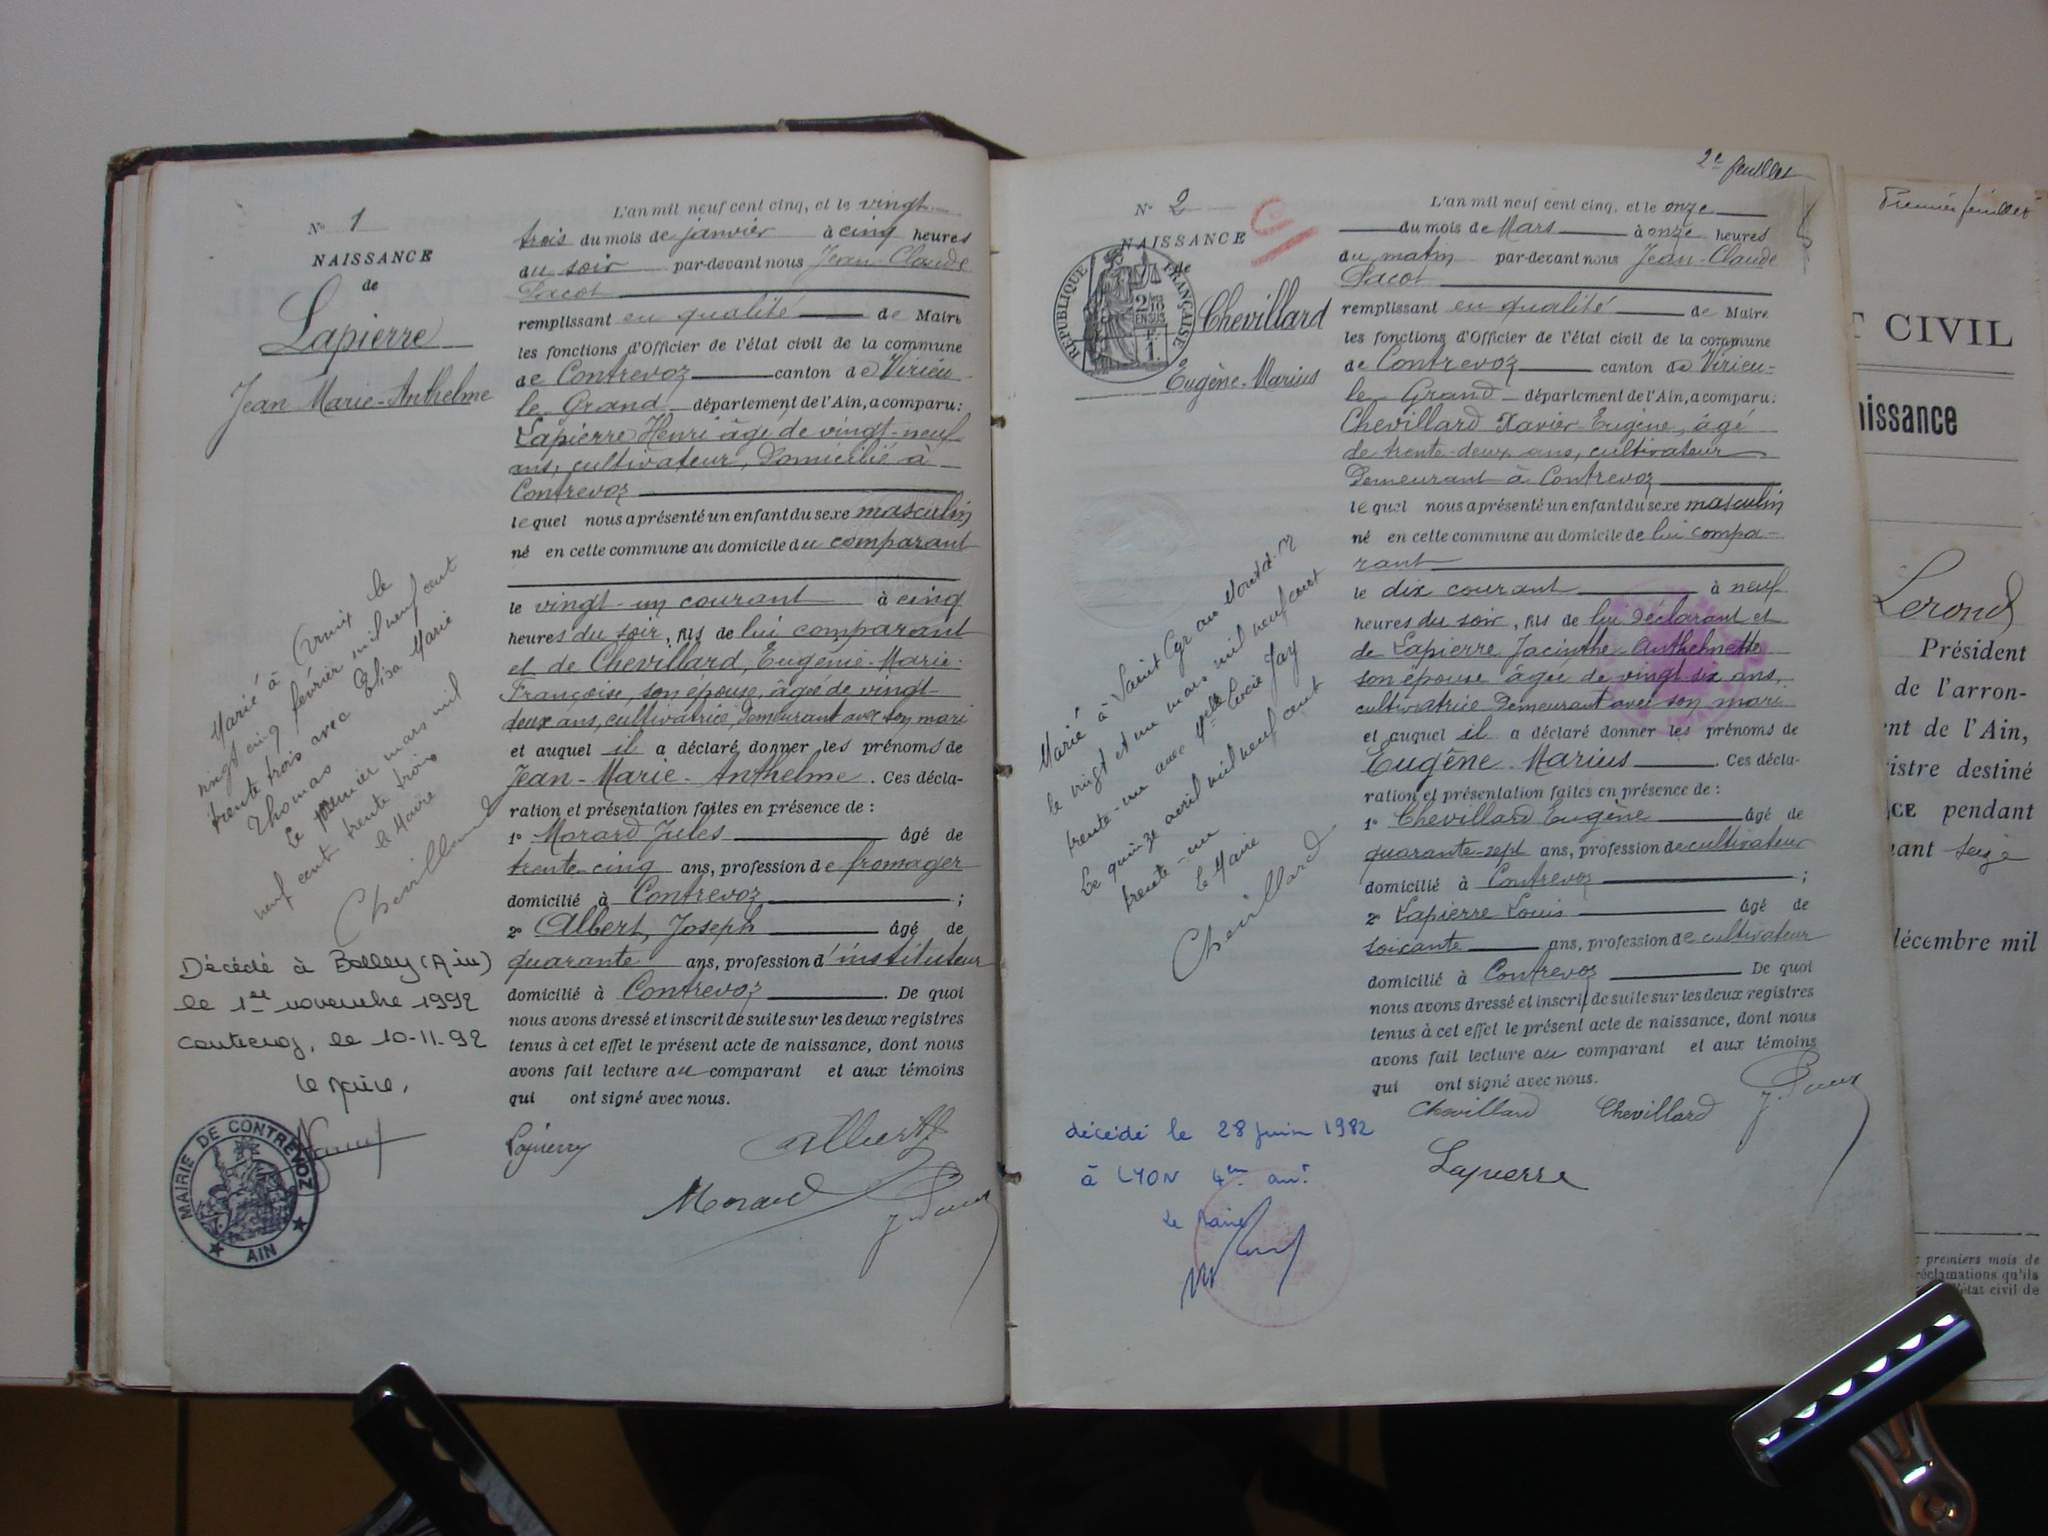 N° 1
NAISSANCE
de
Lapierre
Jean Marie-Anthelme
L'an mil neuf cent cinq, et le vingt
trois du mois de janvier à cinq heures
du soir par-devant nous Jean-Claude
Pacot
remplissant en qualité de Maire
les fonctions d'Officier de l'état civil de la commune
de Contrevoz canton de Virieu-
le Grand département de l'Ain, a comparu:
Lapierre Henri âgé de vingt-neuf
ans, cultivateur, domicilié à
Contrevoz
lequel nous a présenté un enfant du sexe masculin
né en cette commune au domicile du comparant
le vingt-un courant à cinq
heures du soir, fils de lui comparant
et de Chevillard, Eugénie-Marie-
Françoise, son épouse, âgée de vingt-
deux ans, cultivatrice, demeurant avec son mari
et auquel il a déclaré donner les prénoms de
Jean-Marie-Anthelme. Ces décla-
ration et présentation faites en présence de :
1° Morard Jules âgé de
trente-cinq ans, profession de fromager
domicilié à Contrevoz ;
2° Albert, Joseph âgé de
quarante ans, profession d'instituteur
domicilié à Contrevoz. De quoi
nous avons dressé et inscrit de suite sur les deux registres
tenus à cet effet le présent acte de naissance, dont nous
avons fait lecture au comparant et aux témoins
qui ont signé avec nous.
Lapierre
Albert
Morard
Marié à le
vingt cinq février mil neuf cent
trente trois avec Elisa Marie
Thomas
Le premier mars mil
neuf cent trente trois
le Maire
Chevillard
Décédé à Belley (Ain)
le 1er novembre 1992
Contrevoz, le 10-11-92
le Maire,
MAIRIE DE CONTREVOZ
AIN
2e feuillet
N° 2
NAISSANCE
de
RÉPUBLIQUE FRANÇAISE
2/10 EN SUS
1
Chevillard
Eugène-Marius
L'an mil neuf cent cinq, et le onze
du mois de Mars à onze heures
du matin par-devant nous Jean-Claude
Pacot
remplissant en qualité de Maire
les fonctions d'Officier de l'état civil de la commune
de Contrevoz canton de Virieu-
le Grand département de l'Ain, a comparu:
Chevillard Xavier-Eugène, âgé
de trente-deux ans, cultivateur
demeurant à Contrevoz
lequel nous a présenté un enfant du sexe masculin
né en cette commune au domicile de lui compa-
rant
le dix courant à neuf
heures du soir, fils de lui déclarant et
de Lapierre Jacinthe-Anthelmette
son épouse âgée de vingt six ans,
cultivatrice demeurant avec son mari
et auquel il a déclaré donner les prénoms de
Eugêne-Marius. Ces décla-
ration et présentation faites en présence de :
1° Chevillard Eugène âgé de
quarante-sept ans, profession de cultivateur
domicilié à Contrevoz ;
2° Lapierre Louis âgé de
soixante ans, profession de cultivateur
domicilié à Contrevoz De quoi
nous avons dressé et inscrit de suite sur les deux registres
tenus à cet effet le présent acte de naissance, dont nous
avons fait lecture au comparant et aux témoins
qui ont signé avec nous.
Chevillard Chevillard
Lapierre
Marié à Saint Cyr au Mont d'Or
le vingt et un mars mil neuf cent
trente-un avec Melle Lucie Jay
Le quinze avril mil neuf cent
trente-un
le Maire
Chevillard
décédé le 28 juin 1982
à LYON 4em arrt
Le Maire
Premier feuillet
T CIVIL
aissance
Lerond
Président
de l'arron-
ent de l'Ain,
istre destiné
CE pendant
nant seize
décembre mil
premiers mois de
réclamations qu'ils
l'état civil de